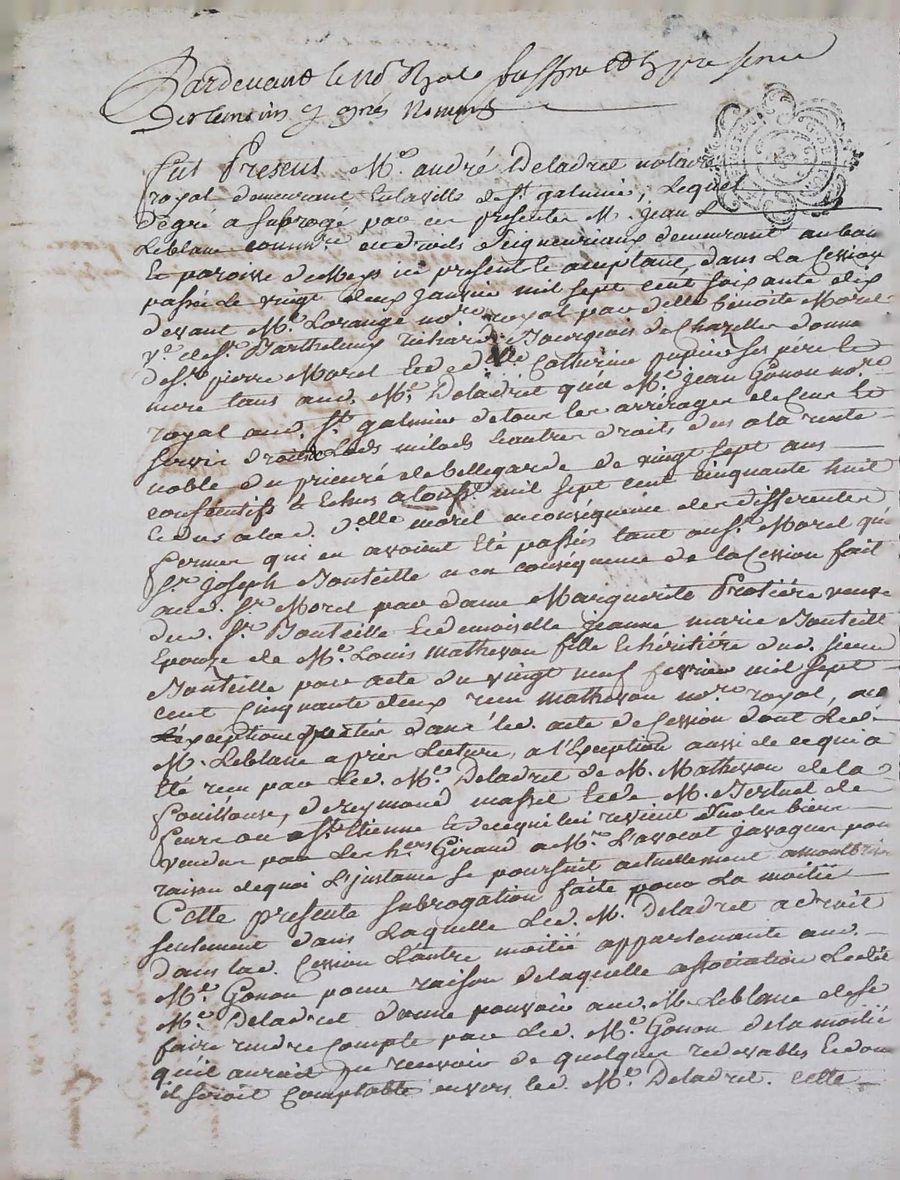 Pardevant le No. Royal soussigné et En presence
Des temoins cy aprés Nommés
fut Present Me. andré Deladret notaire
royal demeurant En la ville de St. galmier, Lequel
de gré a subrogé par ces presentes M. jean
Leblanc commre. en droits seigneuriaux demeurant au
Et paroisse de Meys icy present Et acceptant, dans La Cession
passée Le vingt deux janvier mil sept cent soixante dix
devant Me. Lorange nore. royal par delle. Benoite Morel
ve. de Sr. Barthelemy Richard Bourgeois de Chazelles donne
de Sr. pierre Morel Et de dlle. Catherine pupier ses pére Et
mere tant aud. Me. Deladret qu'a Me. jean Gonon nore.
royal aud. St. galmier de tous les arrérages de Cens Et
servis droits Lods milods Et autres droits dus a la rente
noble du prieuré de bellegarde de vingt sept ans
consécutifs Et Echus a la mil sept cent cinquante huit
Et dus a lad. delle. morel en conséquence des differentes
fermes qui en avoient Eté passées tant au Sr. Morel qu'a
Sr. Joseph Bouteille et en conséquence de la Cession fait
aud. Sr. Morel par dame Marguerite Protiére veuve
dud. Sr. Bouteille Et demoiselle jeanne marie Bouteille
Epouze de Me. Louis mathevon fille Et héritiére dud. sieur
Bouteille par acte du vingt neuf fevrier mil sept
cent cinquante deux reçu mathevon nore. royal, aux
Exceptions portées dans led. acte de Cession dont Led.
M. Leblanc a pris Lecture, a l'Exception aussi de ce qui a
Eté reçu par Led. Me. Deladret de M. Mathevon de la
Pouillouse, de reymond massel Et de M. Bertuel de
feurs ou St. Etienne Et de ce qui lui revient sur les biens
vendus par les hers. Giraud a Me. L'avocat javogues pour
raison de quoi L'instance se poursuit actuellement a montbrison
Cette presente subrogation faite pour La moitié
seulement dans Laquelle Led. M. Deladret a droit
dans lad. Cession L'autre moitié appartenante aud.
Me. Gonon pour raison de laquelle association Ledit
Me. Deladret donne pouvoir aud. M. Leblanc de se
faire rendre compte par Led. Me. Gonon de la moitié
qu'il auroit pu recevoir de quelques redevables Et dont
il seroit Comptable envers led. Me. Deladret. Cette